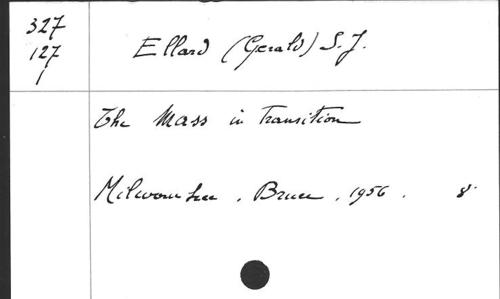 327
127
1
Ellard (Gerald) S.J.
The Mass in Transition
Milwaukee . Bruce . 1956 . 8°